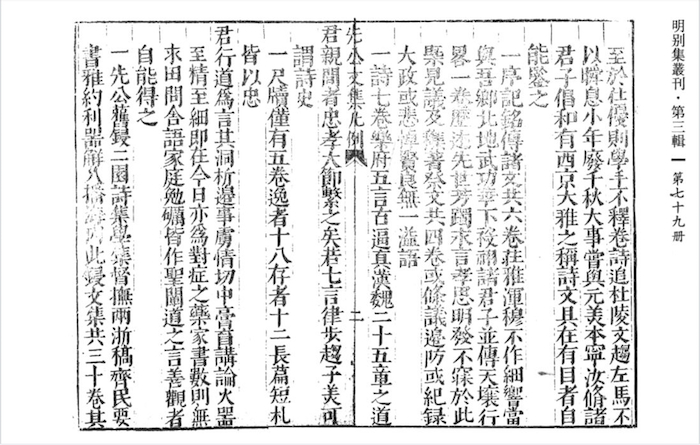 明別集叢刊·第三輯 第七十九册
至於仕優則學手不釋卷詩追杜陵文趨左馬不
以瞬息小年廢千秋大事嘗與元美本寧汝脩諸
君子倡和有西京大雅之稱詩文具在有目者自
能鑒之
一序記銘傳諸文共六卷莊雅渾穆不作細響當
與吾鄉北地武功華下稷諸君子並傳天壤行
畧一卷歷述先世芳躅永言孝思明發不寐於此
槩見議及雜著祭文共四卷或條議邊防或紀錄
大政或悲悼賢良無一溢語
一詩七卷樂府五言古逼真漢魏二十五章之道
君親聞者忠孝大節繫之矣若七言律步趨子美可
謂詩史
先公文集凡例 二
一尺牘僅有五卷逸者十八存者十二長篇短札
皆以忠
君行道爲言其洞析邊事虜情切中膏肓講論火器
至情至細即在今日亦爲對症之藥家書數則無
求田問舍語家庭勉礪皆作聖關道之言善觀者
自能得之
一先公舊鋟二園詩集學集督撫兩浙稿齊民要
書雅約利器解八播此鋟文集共三十卷其